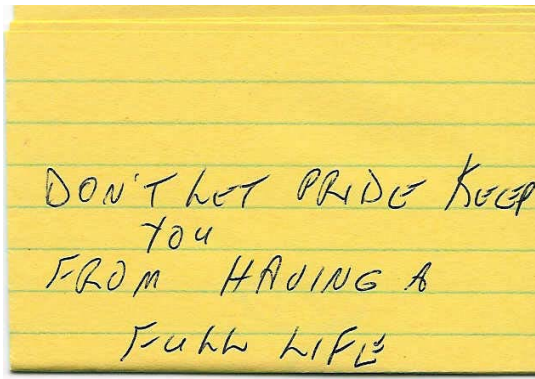 DON'T LET PRIDE KEEP
YOU
FROM HAVING A
FULL LIFE